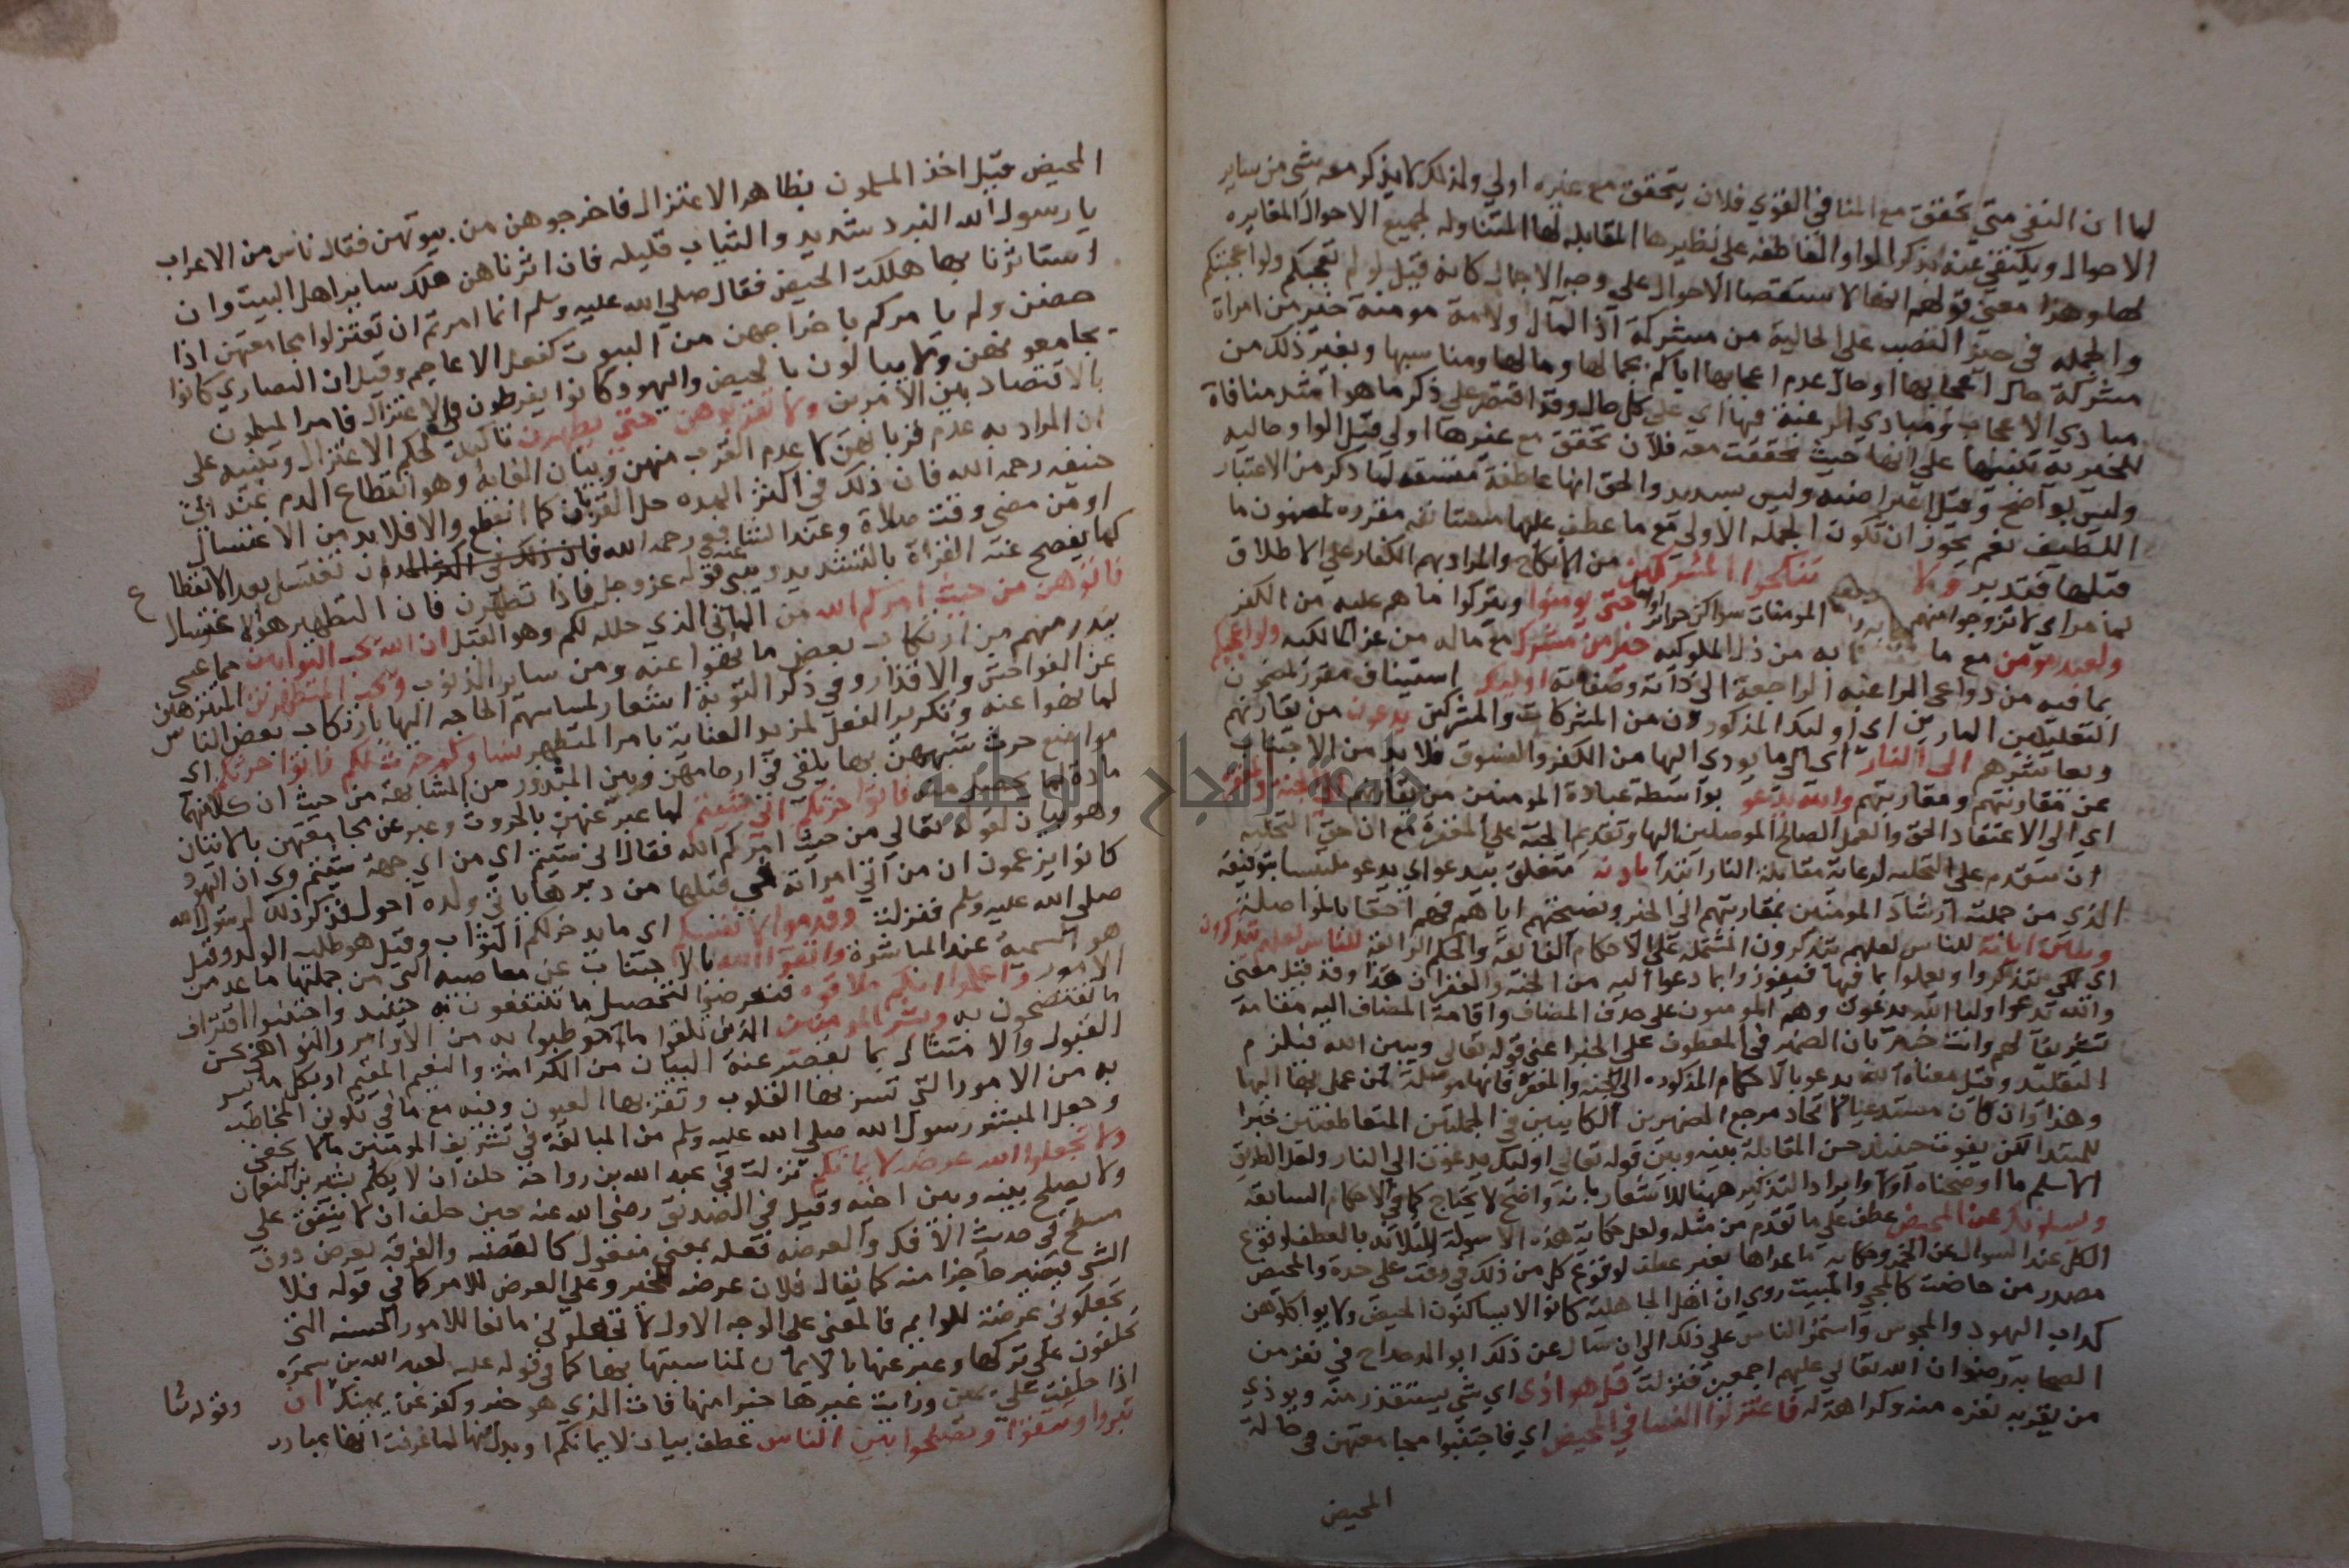 لما ان النفي متي تحقق مع المنافي القوي فلان يتحقق مع غيره اولي ولذلك لا يذكر معه شي من ساير
الاحوال ويكتفي عنه بذكر الواو العاطفه علي نظيرها المقابله لها المتناوله لجميع الاحوال المغايره
لها وهذا معني قولهم انها لاستقصا الاحوال علي وجه الاجمال كانه قيل لو لم تعجبكم ولو اعجبتكم
والجمله في حيز النصب علي الحالية من مشركة اذ المآل ولامة مومنة خير من امراة
مشركة حال اعجابها او حال عدم اعجابها اياكم بجمالها ومالها ومناسبها وبغير ذلك من
مبادي الاعجاب ومبادي الرغبة فيها اي علي كل حال وقد اقتصر علي ذكر ما هو اشد منافاة
للخيرية تنبيها علي انها حيث تحققت معه فلان تحقق مع غيرها اولي وقيل الواو حاليه
وليس بواضح وقيل اعتراضيه وليس بسديد والحق انها عاطفة مستتبعه لما ذكر من الاعتبار
اللطيف نعم يجوز ان تكون الجمله الاولي مع ما عطف عليها مستانفه مقرره لمضمون ما
قبلها فتدبر ولا تنكحوا المشركين من الانكاح والمراد بهم الكفار علي الاطلاق
لما مر اي لا تزوجوا منهم المومنات سوا كن حراير او اما حتي يومنوا ويتركوا ما هم عليه من الكفر
ولعبد مومن مع ما به من ذل المملوكيه خير من مشرك مع ماله من عز المالكيه ولو اعجبكم
بما فيه من دواعي الرغبه الراجعة الي ذاته وصفاته اوليك استيناف مقرر لمضمون
التعليلين المارين اي اوليك المذكورون من المشركات والمشركين يدعون من يقارنهم
ويعاشرهم الي النار اي الي ما يودي اليها من الكفر والفسوق فلا بد من الاجتناب
عن مقارنتهم ومقاربتهم والله يدعو بواسطة عباده المومنين من يقارنهم الي الجنه والمغفرة
اي الي الاعتقاد الحق والعمل الصالح الموصلين اليها وتقديم الجنة علي المغفرة مع ان حق التخليه
ان تتقدم علي التحليه لرعاية مقابلة النار ابتدا باذنه متعلق بيدعو اي يدعو ملتبسا بتوفيقه
الذي من جملته ارشاد المومنين بمقاربتهم الي الخير ونصيحتهم اياهم فهم احقا بالمواصلة
ويبين اياته للناس لعلهم يتذكرون المشتمله علي الاحكام الفايقة والحكم الرايقة للناس لعلهم يتذكرون
اي لكي يتذكروا ويعملوا بما فيها فيفوزوا بما دعوا اليه من الجنة والغفران هذا وقد قيل معني
والله يدعوا وليا الله يدعون وهم المومنون علي حذف المضاف واقامة المضاف اليه مقامه
تشريفا لهم وانت خبير بان الضمير في المعطوف علي الخبر اعني قوله تعالي ويبين الله فيلزم
التفكيك وقيل معناه الله يدعو بالاحكام المذكوره الي الجنه والمغفرة فانها موصلة لمن عمل بها اليها
وهذا وان كان مستدعيا لاتحاد مرجع الضميرين الكاينين في الجملتين المتعاطفتين خبرا
للمبتدا لكن يفوت حينيذ حسن المقابلة بينه وبين قوله تعالي اوليك يدعون الي النار ولعل الطريق
الاسلم ما اوضحناه اولا وايراد التذكير ههنا للاشعار بانه واضح لا يحتاج كما في الاحكام السابقة
ويسيلونك عن المحيض عطف علي ما تقدم من مثله ولعل حكاية هذه الاسولة الثلاثة بالعطف لوقوع
الكل عند السوال عن الخمر وحكاية ما عداها بغير عطف لوقوع كل من ذلك في وقت علي حدة والمحيض
مصدر من حاضت كالمجي والمبيت روي ان اهل الجاهلية كانوا لا يساكنون الحيض ولا يواكلوهن
كداب اليهود والمجوس واستمر الناس علي ذلك الي ان سال عن ذلك ابو الدحداح في نفر من
الصحابة رضوان الله تعالي عليهم اجمعين فنزلت قل هو اذي اي شي يستقذر منه ويوذي
من يقربه نفرة منه وكراهة له فاعتزلوا النسا في المحيض اي فاجتنبوا مجامعتهن في حالة
المحيض
المحيض قيل اخذ المسلمون بظاهر الاعتزال فاخرجوهن من بيوتهن فقال ناس من الاعراب
يا رسول الله البرد شديد والثياب قليله فان اثرناهن هلك ساير اهل البيت وان
استاثرنا بها هلكت الحيض فقال صلي الله عليه وسلم انما امرتم ان تعتزلوا مجامعتهن اذا
حضن ولم يامركم باخراجهن من البيوت كفعل الاعاجم وقيل ان النصاري كانوا
يجامعونهن ولا يبالون بالحيض واليهود كانوا يفرطون في الاعتزال فامر المسلمون
بالاقتصاد بين الامرين ولا تقربوهن حتي يطهرن تاكيد لحكم الاعتزال وتنبيه علي
ان المراد به عدم قربانهن لا عدم القرب منهن وبيان الغاية وهو انقطاع الدم عند ابي
حنيفه رحمه الله فان ذلك في اكثر المده حل القربان كما انقطع والا فلا بد من الاغتسال
او من مضي وقت صلاة وعند الشافعي رحمه الله فان ذلك في اكثر المده ان تغتسل بعد الانقطا
ع
كما يفصح عنه القراة بالتشديد وينبي عنه قوله عز وجل فاذا تطهرن فان التطهير هو الاغتسال
فاتوهن من حيث امركم الله من الماتي الذي حلله لكم وهو القبل ان الله يحب التوابين مما عسي
يندر منهم من ارتكاب بعض ما نهوا عنه ومن ساير الذنوب ويحب المتطهرين المتنزهين
عن الفواحش والاقذار وفي ذكر التوبة اشعار لمساسهم الحاجه اليها بارتكاب بعض الناس
لما نهوا عنه وتكرير الفعل لمزيد العناية بامر المتطهر نساوكم حرث لكم فاتوا حرثكم اي
مواضع حرث شبههن بها يلقي في ارحامهن وبين البذور من المشابهة من حيث ان كلا منهما
مادة لما يحصل منه فاتوا حرثكم اني شيتم لما عبر عنهن بالحروث وعبر عن مجامعتهن بالاتيان
وهو بيان لقوله تعالي من حيث امركم الله فقال اني شيتم اي من اي جهة شيتم روي ان اليهود
كانوا يزعمون ان من اتي امراته في قبلها من دبرها ياتي ولده احول فذكر ذلك لرسول الله
صلي الله عليه وسلم فنزلت وقدموا لانفسكم اي ما يدخر لكم الثواب وقيل هو طلب الولد وقيل
هو التسمية عند المباشرة واتقوا الله بالاجتناب عن معاصيه التي من جملتها ما عد من
الامور واعلموا انكم ملاقوه فتعرضوا لتحصيل ما تنتفعون به حينيذ واجتنبوا اقتراف
ما تفتضحون به وبشر المومنين الذين تلقوا ما خوطبوا به من الاوامر والنواهي بحسن
القبول والامتثال بما يقصر عنه البيان من الكرامة والنعيم المقيم او بكل ما يبشر
به من الامور التي تسر بها القلوب وتقر بها العيون وفيه مع ما في تلوين الخطاب
وجعل المبشر رسول الله صلي الله عليه وسلم من المبالغة في تشريف المومنين ما لا يخفي
ولا تجعلوا الله عرضة لايمانكم نزلت في عبد الله بن رواحة حلف ان لا يكلم بشر بن النعمان
ولا يصلح بينه وبين اخته وقيل في الصديق رضي الله عنه حين حلف ان لا ينفق علي
مسطح في حديث الافك والعرضه فعله بمعني مفعول كالقبضه والغرفه يعرض دون
الشي فيصير حاجزا منه كما يقال فلان عرضه للخير وعلي العرض للامر كما في قوله فلا
تجعلوني عرضة للوايم فالمعني علي الوجه الاول لا تجعلوني مانعا للامور الحسنه التي
تحلفون علي تركها وعبر عنها بالايمان لمناسبتها بها كما في قوله عليه لعبد الله بن سمرة
اذا حلفت علي يمين ورايت غيرها خيرا منها فات الذي هو خير وكفر عن يمينك ان
وقوله تعا
تبروا وتتقوا وتصلحوا بين الناس عطف بيان لايمانكم او بدل منها لما عرفت انها عبارة
جامعة النجاح الوطنية